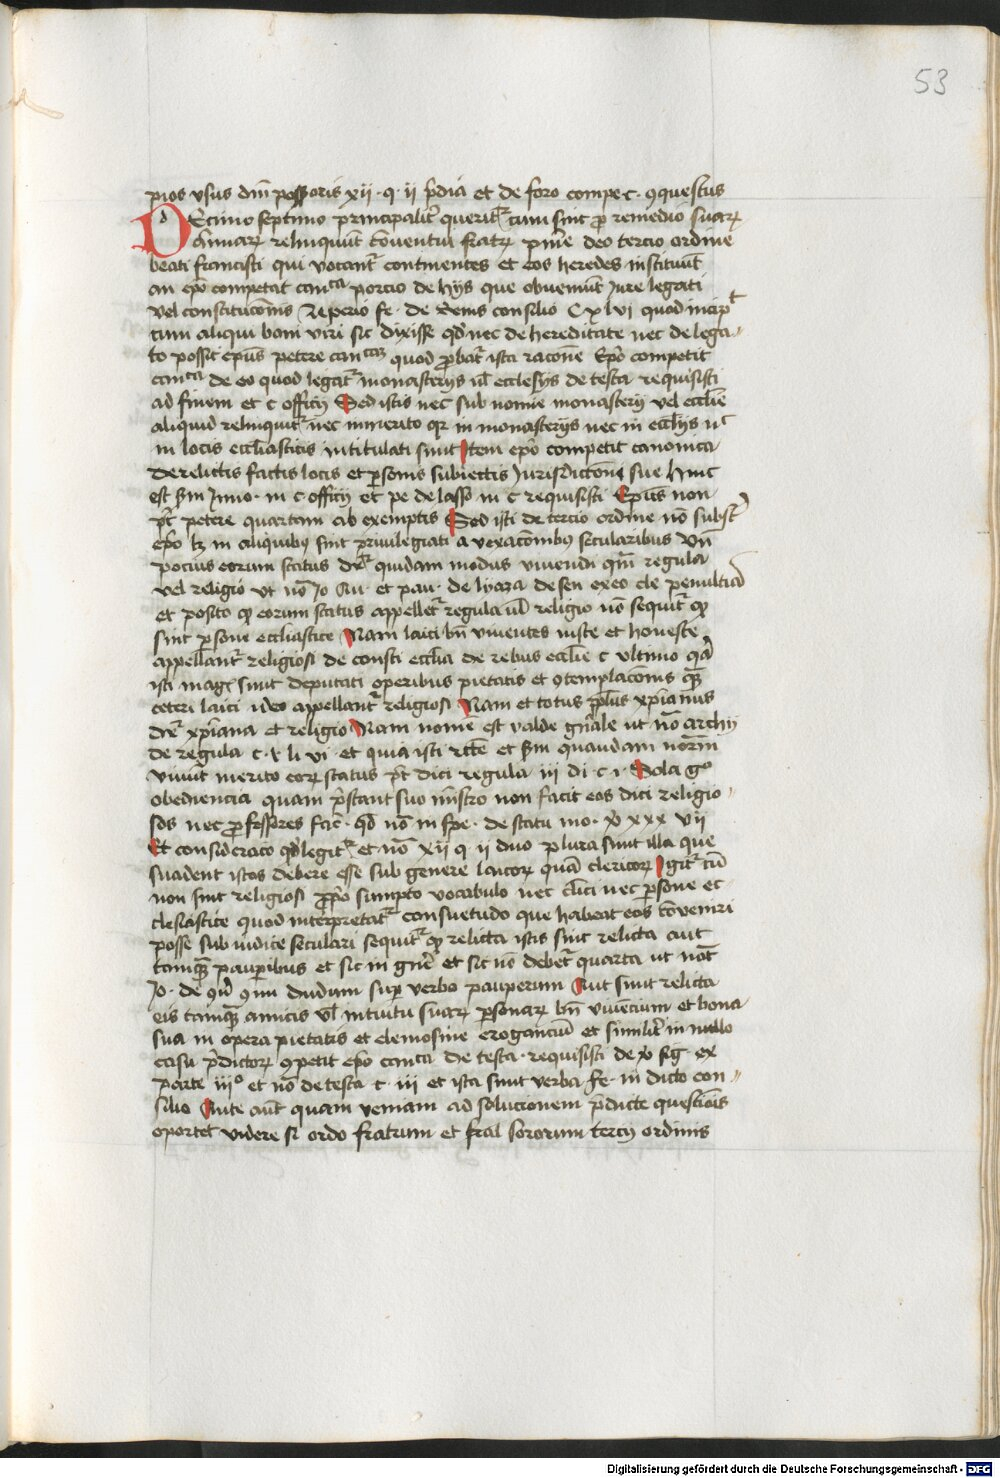 53
pios vsus dm̄ possoris xij · q · ij p̄dia et de foro compe · c · ꝯquestus
DEcimo septimo principalit̓ querit᷑ cum sint ꝓ remedio suaꝝ
aīmaꝝ relinquūt cōuentui fratꝝ pn̄ie deo tercio ordine
beati francisci qui vocant᷑ continentes et eos heredes instituūt
an ep̄o competat canᶜᵃ porcio de hijs que obueniūt Jure legati
vel constitucōnis Reperio fe · de Senis consilio C xlvi quod incip̄t
cum aliqui boni viri sic dixisse qd̓ nec de hereditate nec de lega〃
to possit ep̄us petere canᶜᵃᵐ quod ꝓbat᷑ ista racōne Ep̄o competit
canᶜᵃ de eo quod legat᷑ monasterijs ul̓ ecclesijs de testa requisisti
ad finem et c officij Sed istis nec sub nomīe monasterij vel eccl̄ie
aliquid relinquit᷑ nec inmerito qꝛ in monasterijs nec in eccl̄ijs uᶜ
in locis eccl̄iasticis intitulati sunt Item ep̄o competit canonica
de relictis factis locis et ꝑsonis subiectis Jurisdictōni sue hinc
est s̄m Inno · in c officij et pe de lasso in c requisisti Ep̄us non
pt̄ petere quartam ab exemptis Sed isti de tercio ordine nō subst̓
ep̄o lꝫ in aliquibus sint priuilegiati a vexacōnibus secularibus Vn̄
pocius eorum status dr᷑ quidam modus viuendi qm̄ regula
vel religio vt nō Jo An · et pau · de lyaza de sen exeo cle penultiā
et posito ꝙ eorum status appellet᷑ regula ul̓ religio nō sequit᷑ ꝙ
sint ꝑsone eccl̄iastice Nam laici bn̄ viuentes iuste et honeste
appellant᷑ religiosi de consti eccl̄ia de rebus eccl̄ie c vltimo qꝛ
isti magis sunt deputati operibus pietatis et ꝯtemplacōnis qᷓꝫ
ceteri laici ideo appellant᷑ religiosi Nam et totus pp̄lus xp̄ianus
dr᷑ xp̄iana et religio Nam nomē est valde gn̄ale ut nō archij
de regula c · x li vi · et quia isti rc̄te et s̄m quandam normā
viuūt merito eoꝝ status pt̄ dici regula iii di · c · i · Sola gᵒ
obediencia quam p̄stant suo mīstro non facit eos dici religio〃
sos nec ꝓfessores fac̄ · qd̓ nō in spe · de statu mo · xo xxx vij
Et consideracō qd̓ legit᷑ et nō xij q ij duo plura sunt illa que
suadent istos debere esse sub genere laicoꝝ quā clericoꝝ Igit᷑ cū
non sint religiosi ꝓp̓o sumpto vocabulo nec cl̄ici nec ꝑsone ec
clesiastice quod interpretat᷑ consuetudo que habeat eos cōueniri
posse sub iudice seculari sequit᷑ ꝙ relicta istis sint relicta aut
tamqᷓꝫ pauꝑibus et sic in gn̄e et sic nō debet᷑ quarta ut not̄
Jo · de qu̓ ꝯni dudum suꝑ verbo pauperum Aut sunt relicta
eis tamqᷓꝫ amicis ul̓ intuitu suaꝝ ꝑsonaꝝ bn̄ viuenciūm et bona
sua in opera pietatis et elemosine erogancium et similit̓ in nullo
casu p̄dictoꝝ ꝯpetit ep̄o canᶜᵃ de testa · requisisti de xo sig ex
parte iijᵒ et nō de testa c · iii et ista sunt verba fe · in dicto con〃
silio Ante aūt quam veniam ad solucionem p̄dicte questiōis
oportet videre si ordo fratrum et sīal sororum tercij ordinis
Digitalisierung gefördert durch die Deutsche Forschungsgemeinschaft - DFG